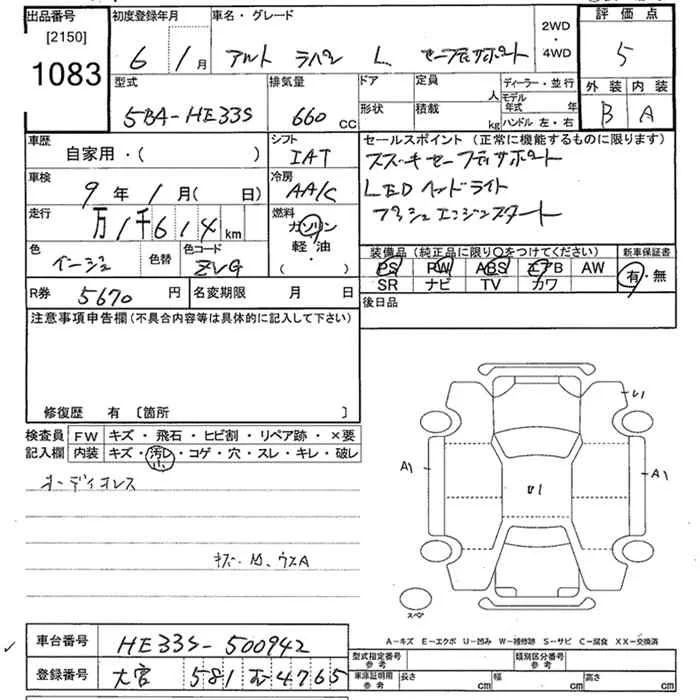 出品番号 初度登録年月 車名・グレード 2WD・4WD 評価点
[2150] 6 / 1月 アルト ラパン L セーフティサポート 5
1083 型式 排気量 ドア 定員 人 ディーラー・並行 外装 内装
5BA-HE33S 660 CC 形状 積載 kg モデル年式 年 ハンドル 左・右 B A
車歴 自家用・( ) シフト IAT セールスポイント (正常に機能するものに限ります)
スズキセーフティサポート
車検 9年1月(日) 冷房 AA/C LEDヘッドライト
走行 万1千614km 燃料 ガソリン プッシュエンジンスタート
軽・油 ( )
色 ベージュ 色替 色コード ZVG 装備品 (純正品に限り〇をつけてください) 新車保証書
PS PW ABS エアB AW 有・無
SR ナビ TV カワ
R券 5670円 名変期限 月 日 後日品
注意事項申告欄 (不具合内容等は具体的に記入して下さい)
修復歴 有 [箇所 ]
検査員記入欄 FW キズ・飛石・ヒビ割・リペア跡・×要
内装 キズ・汚レ・コゲ・穴・スレ・キレ・破レ
小
オーディオレス
U1
A1 U1 A1
キズ・凹、ウスA
スペア
A-キズ E-エクボ U-凹み W-補修跡 S-サビ C-腐食 XX-交換済
車台番号 HE33S-500942
登録番号 大宮 581 4765
型式指定番号 参考 類別区分番号 参考
車庫証明用 参考 長さ cm 幅 cm 高さ cm